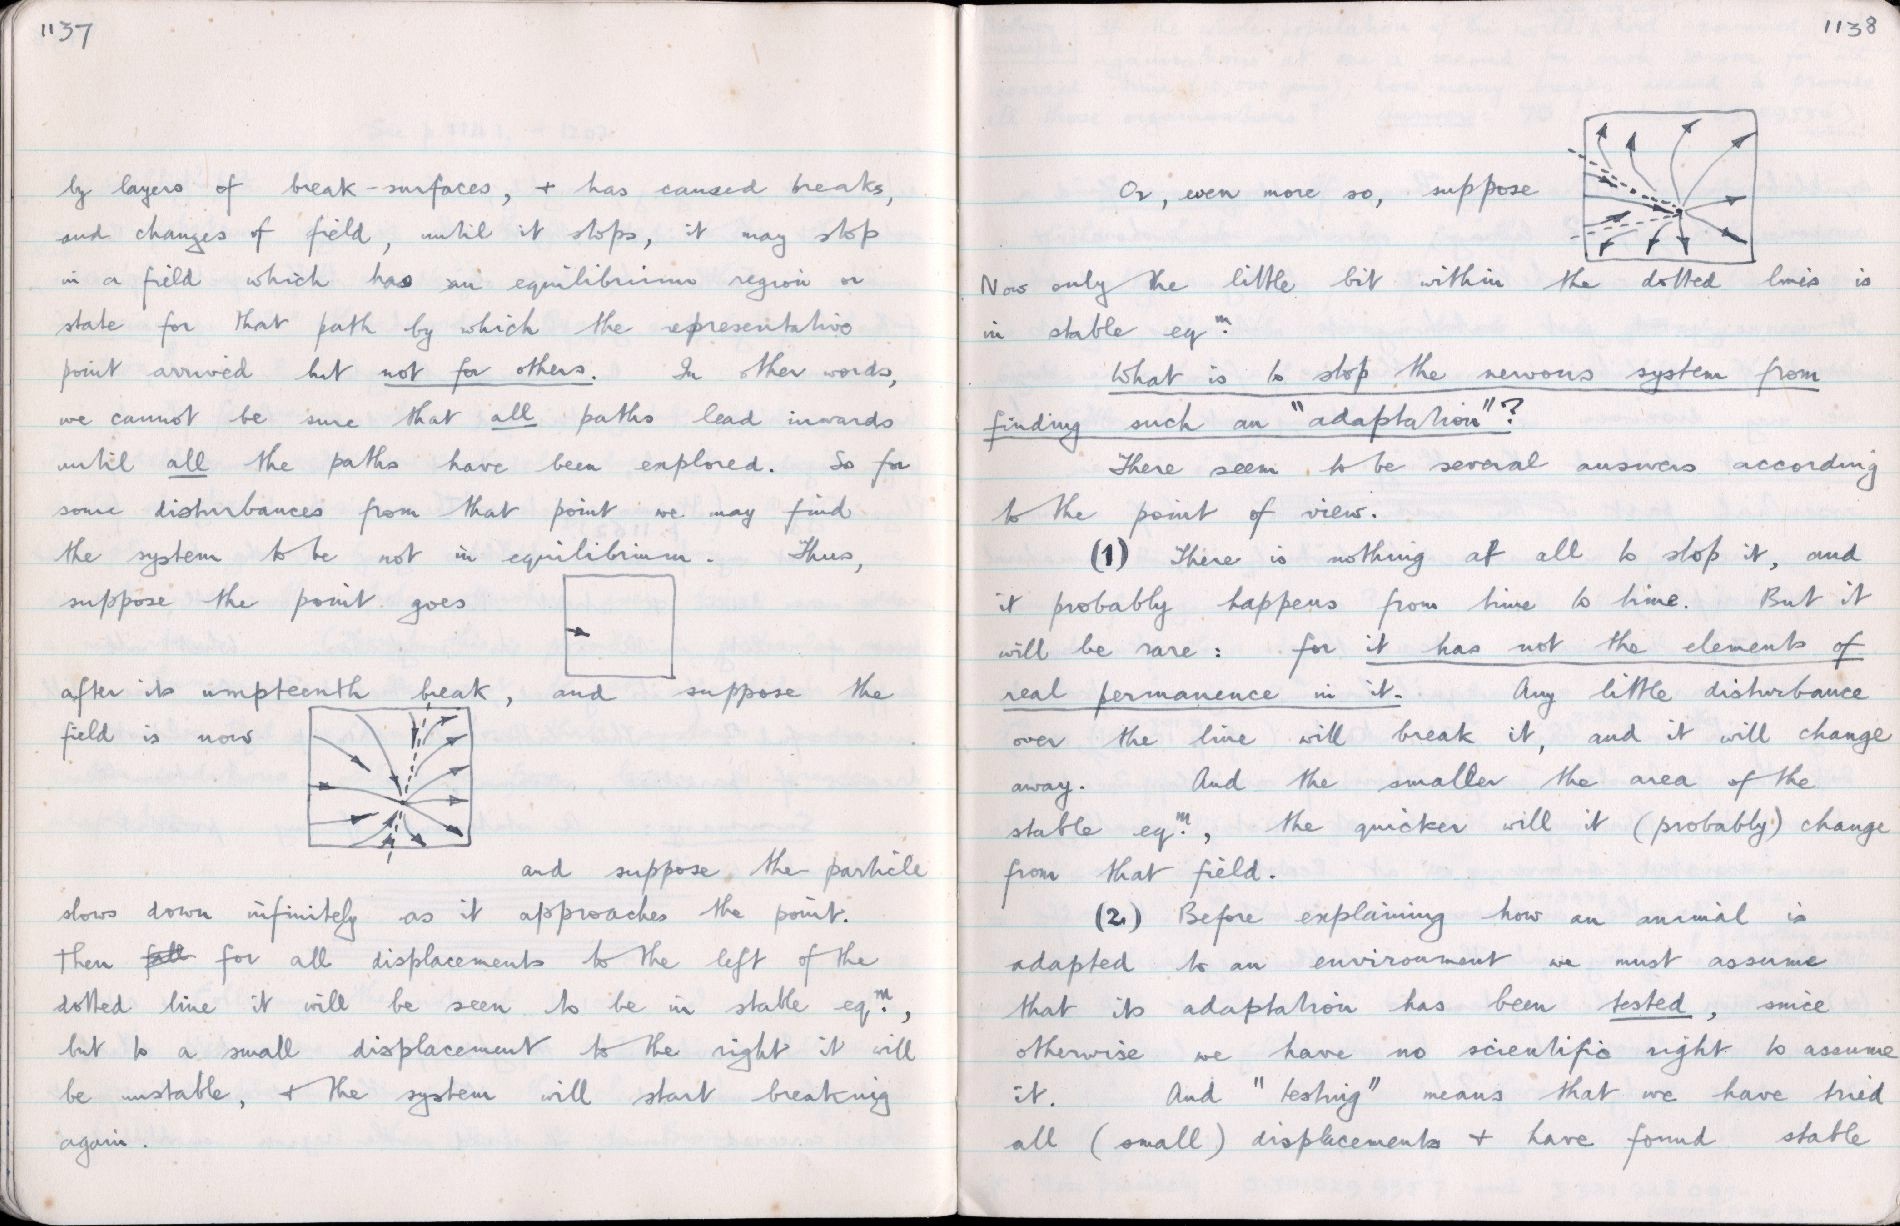 1137
by layers of break-surfaces, + has caused breaks,
and changes of field, until it stops, it may stop
in a field which has an equilibrium region or
state for that path by which the representative
point arrived but not for others. In other words,
we cannot be sure that all paths lead inwards
until all the paths have been explored. So for
some disturbances from that point we may find
the system to be not in equilibrium. Thus,
suppose the point goes
after its umpteenth break, and suppose the
field is now
and suppose the particle
slows down infinitely as it approaches the point.
Then for all displacements to the left of the
dotted line it will be seen to be in stable eqm.,
but to a small displacement to the right it will
be unstable, + the system will start breaking
again.
1138
Or, even more so, suppose
Now only the little bit within the dotted lines is
in stable eqm.
What is to stop the nervous system from
finding such an "adaptation"?
There seem to be several answers according
to the point of view.
(1) There is nothing at all to stop it, and
it probably happens from time to time. But it
will be rare: for it has not the elements of
real permanence in it. Any little disturbance
over the line will break it, and it will change
away. And the smaller the area of the
stable eqm., the quicker will it (probably) change
from that field.
(2) Before explaining how an animal is
adapted to an environment we must assume
that its adaptation has been tested, since
otherwise we have no scientific right to assume
it. And "testing" means that we have tried
all (small) displacements + have found stable